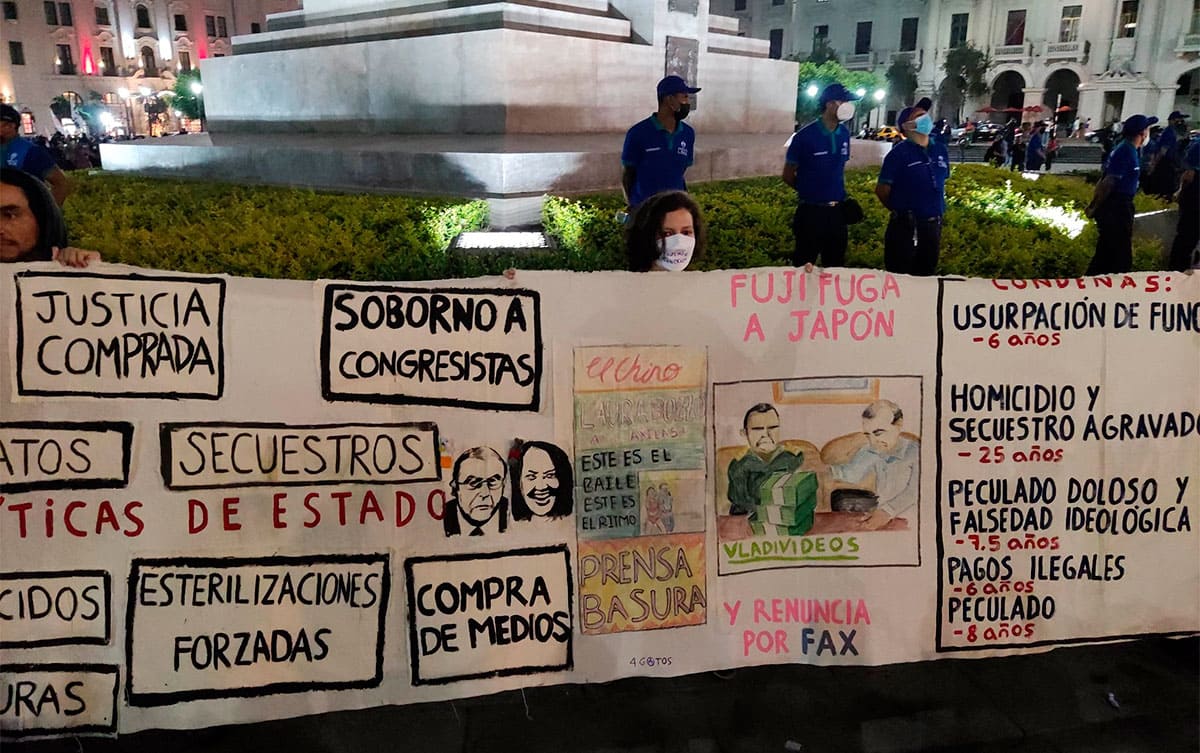 JUSTICIA
COMPRADA
SOBORNO A
CONGRESISTAS
ATOS
SECUESTROS
ÍTICAS DE ESTADO
CIDOS
ESTERILIZACIONES
FORZADAS
COMPRA
DE MEDIOS
URAS
el Chino
LAURA BOZZO
ESTE ES EL
BAILE
ESTE ES
EL RITMO
PRENSA
BASURA
4GATOS
FUJI FUGA
A JAPÓN
VLADIVIDEOS
Y RENUNCIA
POR FAX
CONDENAS:
USURPACIÓN DE FUNC
- 6 años
HOMICIDIO Y
SECUESTRO AGRAVADO
- 25 años
PECULADO DOLOSO Y
FALSEDAD IDEOLÓGICA
- 7.5 años
PAGOS ILEGALES
- 6 años
PECULADO
- 8 años